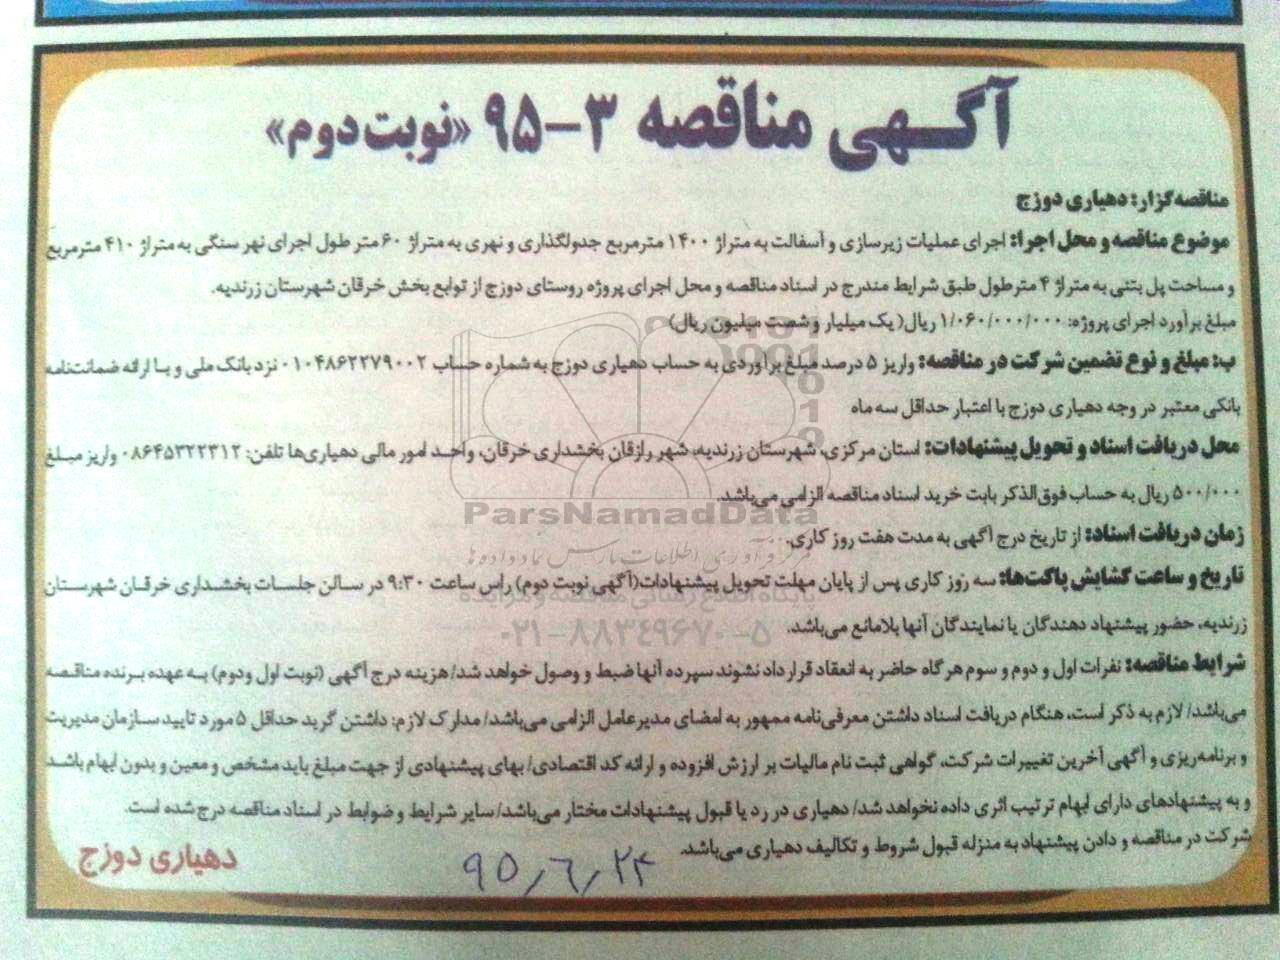 آگهی مناقصه ۳-۹۵ «نوبت دوم»
مناقصه‌گزار: دهیاری دوزج
موضوع مناقصه و محل اجرا: اجرای عملیات زیرسازی و آسفالت به متراژ ۱۴۰۰ مترمربع جدولگذاری و نهری به متراژ ۶۰ متر طول اجرای نهر سنگی به متراژ ۴۱۰ مترمربع
و مساحت پل بتنی به متراژ ۴ مترطول طبق شرایط مندرج در اسناد مناقصه و محل اجرای پروژه روستای دوزج از توابع بخش خرقان شهرستان زرندیه.
مبلغ برآورد اجرای پروژه: ۱/۰۶۰/۰۰۰/۰۰۰ ریال( یک میلیار و شصت میلیون ریال)
ب: مبلغ و نوع تضمین شرکت در مناقصه: واریز ۵ درصد مبلغ برآوردی به حساب دهیاری دوزج به شماره حساب ۰۱۰۴۸۶۲۲۷۹۰۰۲ نزد بانک ملی و یا ارائه ضمانت‌نامه
بانکی معتبر در وجه دهیاری دوزج با اعتبار حداقل سه ماه
محل دریافت اسناد و تحویل پیشنهادات: استان مرکزی، شهرستان زرندیه، شهر رازقان بخشداری خرقان، واحد امور مالی دهیاری‌ها تلفن: ۰۸۶۴۵۳۲۲۳۱۲ واریز مبلغ
۵۰۰/۰۰۰ ریال به حساب فوق‌الذکر بابت خرید اسناد مناقصه الزامی می‌باشد.
ParsNamadData
زمان دریافت اسناد: از تاریخ درج آگهی به مدت هفت روز کاری.
مرکز فرآوری اطلاعات پارس نماد داده‌ها
تاریخ و ساعت گشایش پاکت‌ها: سه روز کاری پس از پایان مهلت تحویل پیشنهادات(آگهی نوبت دوم) راس ساعت ۹:۳۰ در سالن جلسات بخشداری خرقان شهرستان
پایگاه اطلاع رسانی مناقصه و مزایده
زرندیه، حضور پیشنهاد دهندگان یا نمایندگان آنها بلامانع می‌باشد.
۰۲۱-۸۸۳۴۹۶۷۰-۵
شرایط مناقصه: نفرات اول و دوم و سوم هر گاه حاضر به انعقاد قرارداد نشوند سپرده آنها ضبط و وصول خواهد شد/ هزینه درج آگهی (نوبت اول و دوم) به عهده برنده مناقصه
می‌باشد/ لازم به ذکر است، هنگام دریافت اسناد داشتن معرفی‌نامه ممهور به امضای مدیرعامل الزامی می‌باشد/ مدارک لازم: داشتن گرید حداقل ۵ مورد تایید سازمان مدیریت
و برنامه‌ریزی و آگهی آخرین تغییرات شرکت، گواهی ثبت نام مالیات بر ارزش افزوده و ارائه کد اقتصادی/ بهای پیشنهادی از جهت مبلغ باید مشخص و معین و بدون ابهام باشد
و به پیشنهادهای دارای ابهام ترتیب اثری داده نخواهد شد/ دهیاری در رد یا قبول پیشنهادات مختار می‌باشد/ سایر شرایط و ضوابط در اسناد مناقصه درج شده است.
شرکت در مناقصه و دادن پیشنهاد به منزله قبول شروط و تکالیف دهیاری می‌باشد.
دهیاری دوزج
۹۵٫۶٫۲۴